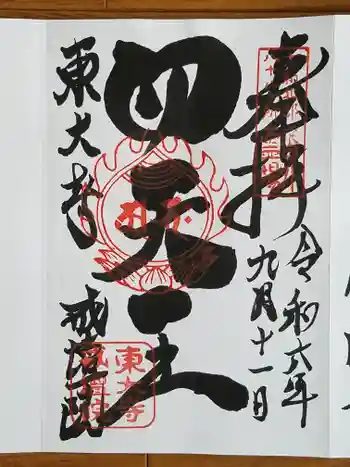 奉拝
令和六年
九月十一日
四天王
東大寺
戒壇院
東大寺
戒壇院